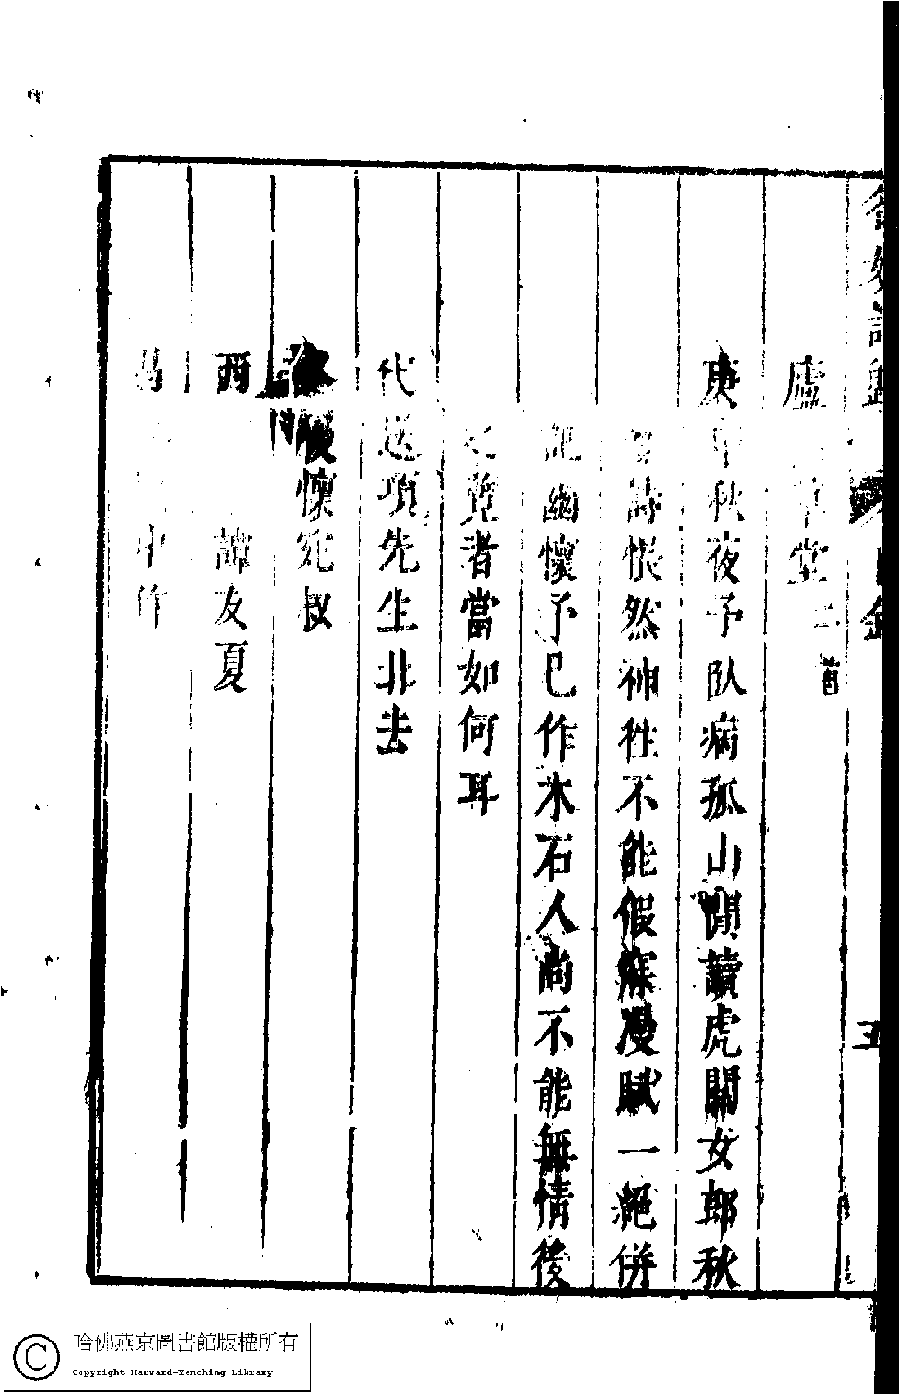 廬 草堂二首
庚 秋夜予臥病孤山閒讀虎關女郎秋
詩恨然神往不能假寐漫賦一絕併
幽懷予已作木石人尚不能無情後
之覽者當如何耳
代送項先生北去
懷死
西 譚友夏
中作
五
哈佛燕京圖書館版權所有
Copyright Harvard-Yenching Library